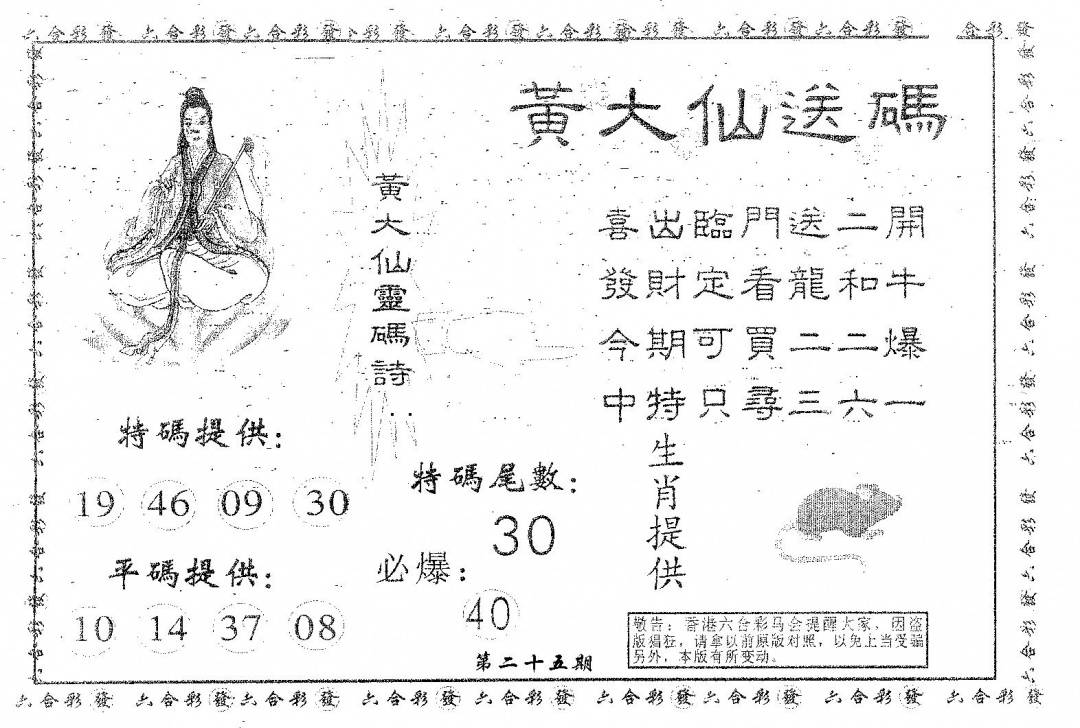 六合彩 發 六合彩 發 六合彩 發 六合彩 發 六合彩 發 六合彩 發 六合彩 發 六合彩 發 六合彩 發
黃大仙送碼
喜出臨門送二開
發財定看龍和牛
今期可買二二爆
中特只尋三六一
黃大仙靈碼詩:
特碼提供:
19 46 09 30
平碼提供:
10 14 37 08
特碼尾數:
30
必爆:
40
生肖提供
敬告：香港六合彩马会提醒大家，因盗
版猖狂，请拿以前原版对照，以免上当受骗
另外，本版有所变动。
第二十五期
六合彩 發 六合彩 發 六合彩 發 六合彩 發 六合彩 發 六合彩 發 六合彩 發 六合彩 發 六合彩 發